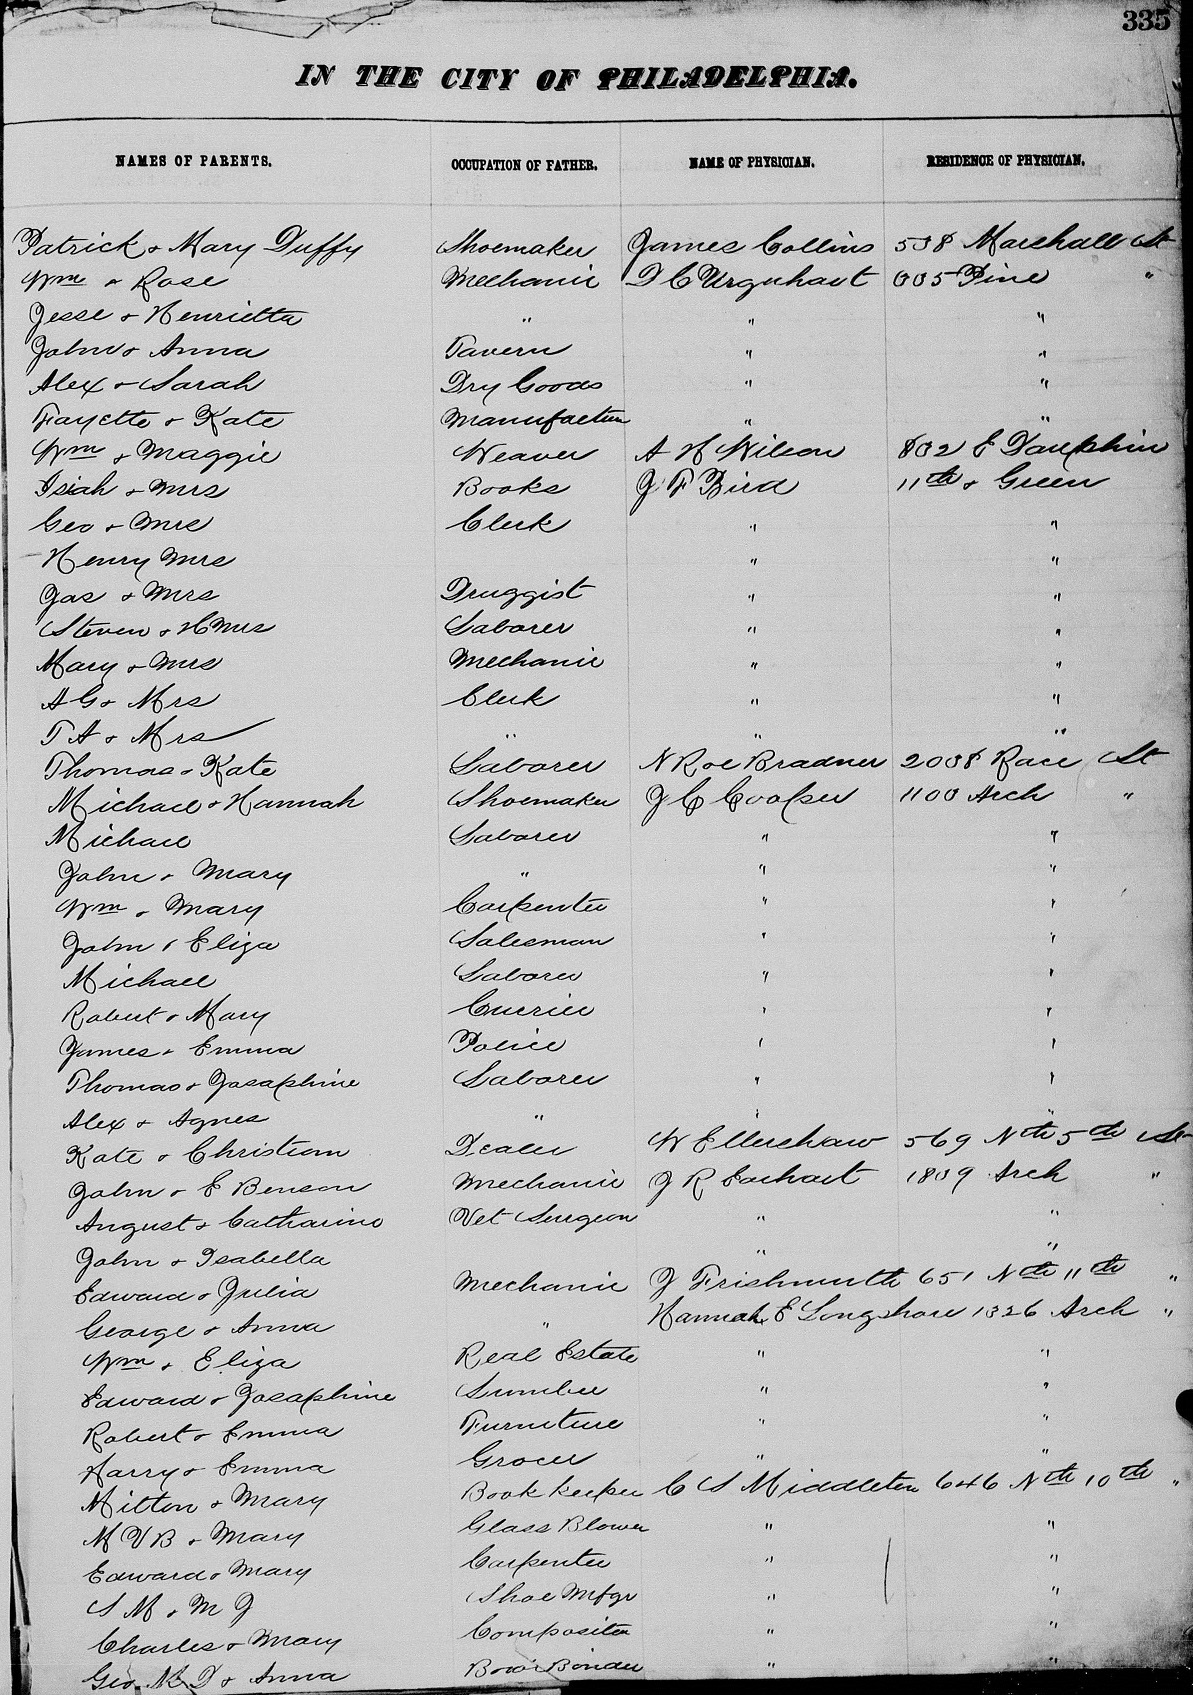 335
IN THE CITY OF PHILADELPHIA.
NAMES OF PARENTS. OCCUPATION OF FATHER. NAME OF PHYSICIAN. RESIDENCE OF PHYSICIAN.
Patrick & Mary Duffy Shoemaker James Collins 538 Marshall St
Wm & Rose Mechanic D C Urquhart 605 Pine "
Jesse & Henrietta " " "
John & Anna Tavern " "
Alex & Sarah Dry Goods " "
Fayette & Kate Manufacturer " "
Wm & Maggie Weaver A H Wilson 802 E Dauphin
Isiah & Mrs Books J F Bird 11th & Green
Geo & Mrs Clerk " "
Henry Mrs " "
Jas & Mrs Druggist " "
Steven & H Mrs Laborer " "
Mary & Mrs Mechanic " "
A G & Mrs Clerk " "
T A & Mrs " " "
Thomas & Kate Laborer N Roe Bradner 2038 Race St
Michael & Hannah Shoemaker J C Cooper 1100 Arch "
Michael Laborer " "
John & Mary " " "
Wm & Mary Carpenter " "
John & Eliza Salesman " "
Michael Laborer " "
Robert & Mary Currier " "
James & Emma Police " "
Thomas & Josaphine Laborer " "
Alex & Agnes " " "
Kate & Christian Dealer W Ellershaw 569 Nth 5th St
John & E Benson Mechanic J R Earhart 1809 Arch "
August & Catharine Vet Surgeon " "
John & Isabella " "
Edward & Julia Mechanic J Frishmuth 651 Nth 11th "
George & Anna " Hannah E Longshore 1326 Arch "
Wm & Eliza Real Estate " "
Edward & Josaphine Lumber " "
Robert & Emma Furniture " "
Harry & Emma Grocer " "
Milton & Mary Book Keeper C S Middleton 646 Nth 10th "
M V B & Mary Glass Blower " "
Edward & Mary Carpenter " "
S M & M J Shoe Mfgr " "
Charles & Mary Compositor " "
Geo M D & Anna Book Binder " "